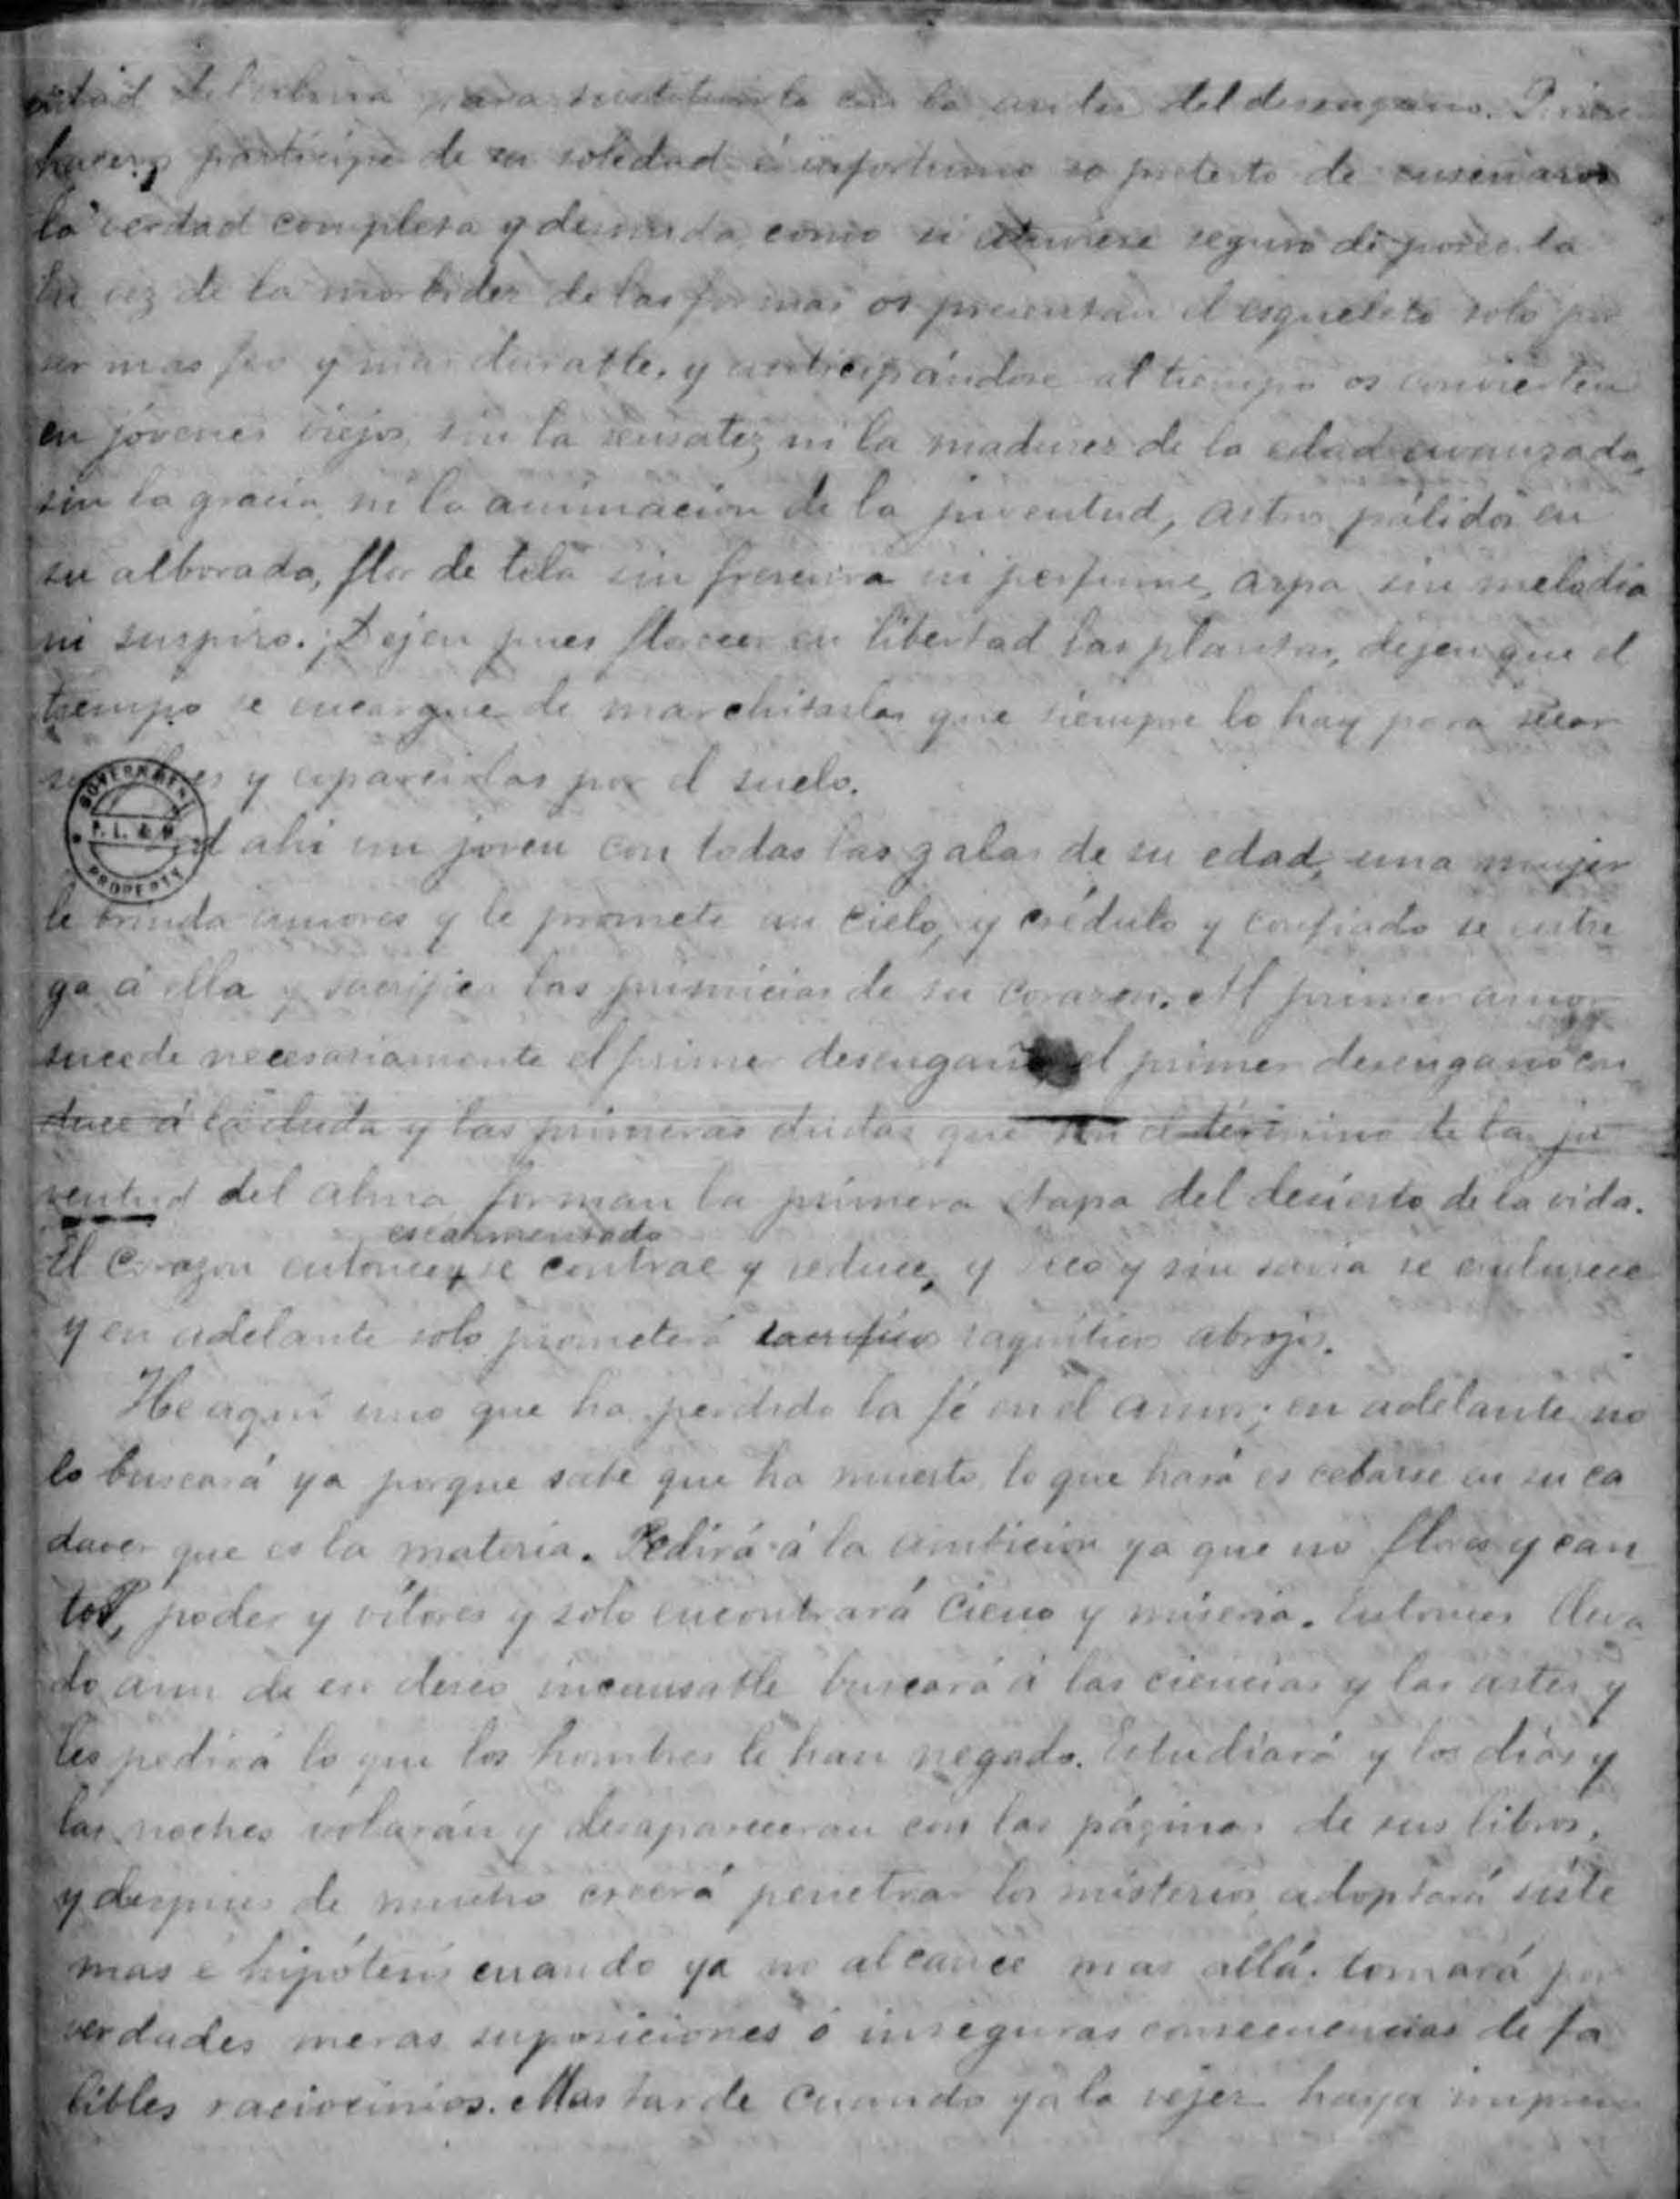 para con la del desengaño.
haceros partícipe de su soledad é infortunio so pretesto de enseñaros
la verdad completa y desnuda, como si estuviese seguro de poseerla
En vez de la morbidez de las formas os presentan el esqueleto solo por
ser mas feo y mas durable, y anticipándose al tiempo os convierten
en jóvenes viejos, sin la sensatez ni la madurez de la edad avanzada,
sin la gracia ni la animacion de la juventud, astros pálidos en
su alborada, flor de tela sin frescura ni perfume, arpa sin melodia
ni suspiro. ¡Dejen pues florecer en libertad las plantas, dejen que el
tiempo se encargue de marchitarlas que siempre lo hay para secar
y esparcirlas por el suelo.
GOVERNMENT
P. L. & M.
PROPERTY
ahi un joven con todas las galas de su edad, una mujer
le brinda amores y le promete un cielo, y crédulo y confiado se entre
ga á ella y sacrifica las primicias de su corazon. Al primer amor
sucede necesariamente el primer desengaño el primer desengaño con
duce á la duda y las primeras dudas que son el término de la ju
ventud del alma forman la primera etapa del desierto de la vida.
escarmentado
El corazon entonces, se contrae y reduce, y seco y sin savia se endurece
y en adelante solo prometerá sacrificios raquíticos abrojos.
He aqui uno que ha perdido la fé en el amor; en adelante no
lo buscará ya porque sabe que ha muerto, lo que hará es cebarse en su ca
daver que es la materia. Pedirá á la ambicion ya que no flores y can
tos, poder y vítores y solo encontrará cieno y miseria. Entonces lleva
do aun de ese deseo incansable buscará á las ciencias y las artes y
les pedirá lo que los hombres le han negado. Estudiará y los dias y
las noches volarán y desapareceran con las páginas de sus libros,
y despues de mucho creerá penetrar los misterios, adoptará siste
mas é hipótesis cuando ya no alcance mas allá, tomará por
verdades meras suposiciones ó inseguras consecuencias de fa
libles raciocinios. Mas tarde cuando ya la vejez haya